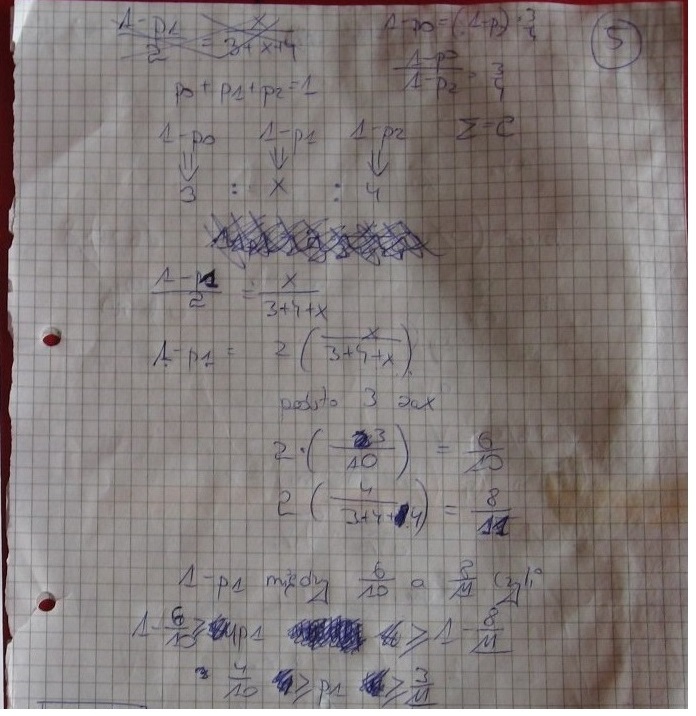 1-p0 = (1-p2) · 3/4
5
(1-p0)/(1-p2) = 3/4
p0 + p1 + p2 = 1
1-p0 1-p1 1-p2 Σ=C
⇓ ⇓ ⇓
3 : x : 4
(1-p1)/2 = x/(3+4+x)
1-p1 = 2 (x/(3+4+x))
3 za x
2 · (3/10) = 6/10
2 (4/(3+4+4)) = 8/11
1-p1 między 6/10 a 8/11 czyli
1 - 6/10 ≥ p1 ≥ 1 - 8/11
4/10 ≥ p1 ≥ 3/11